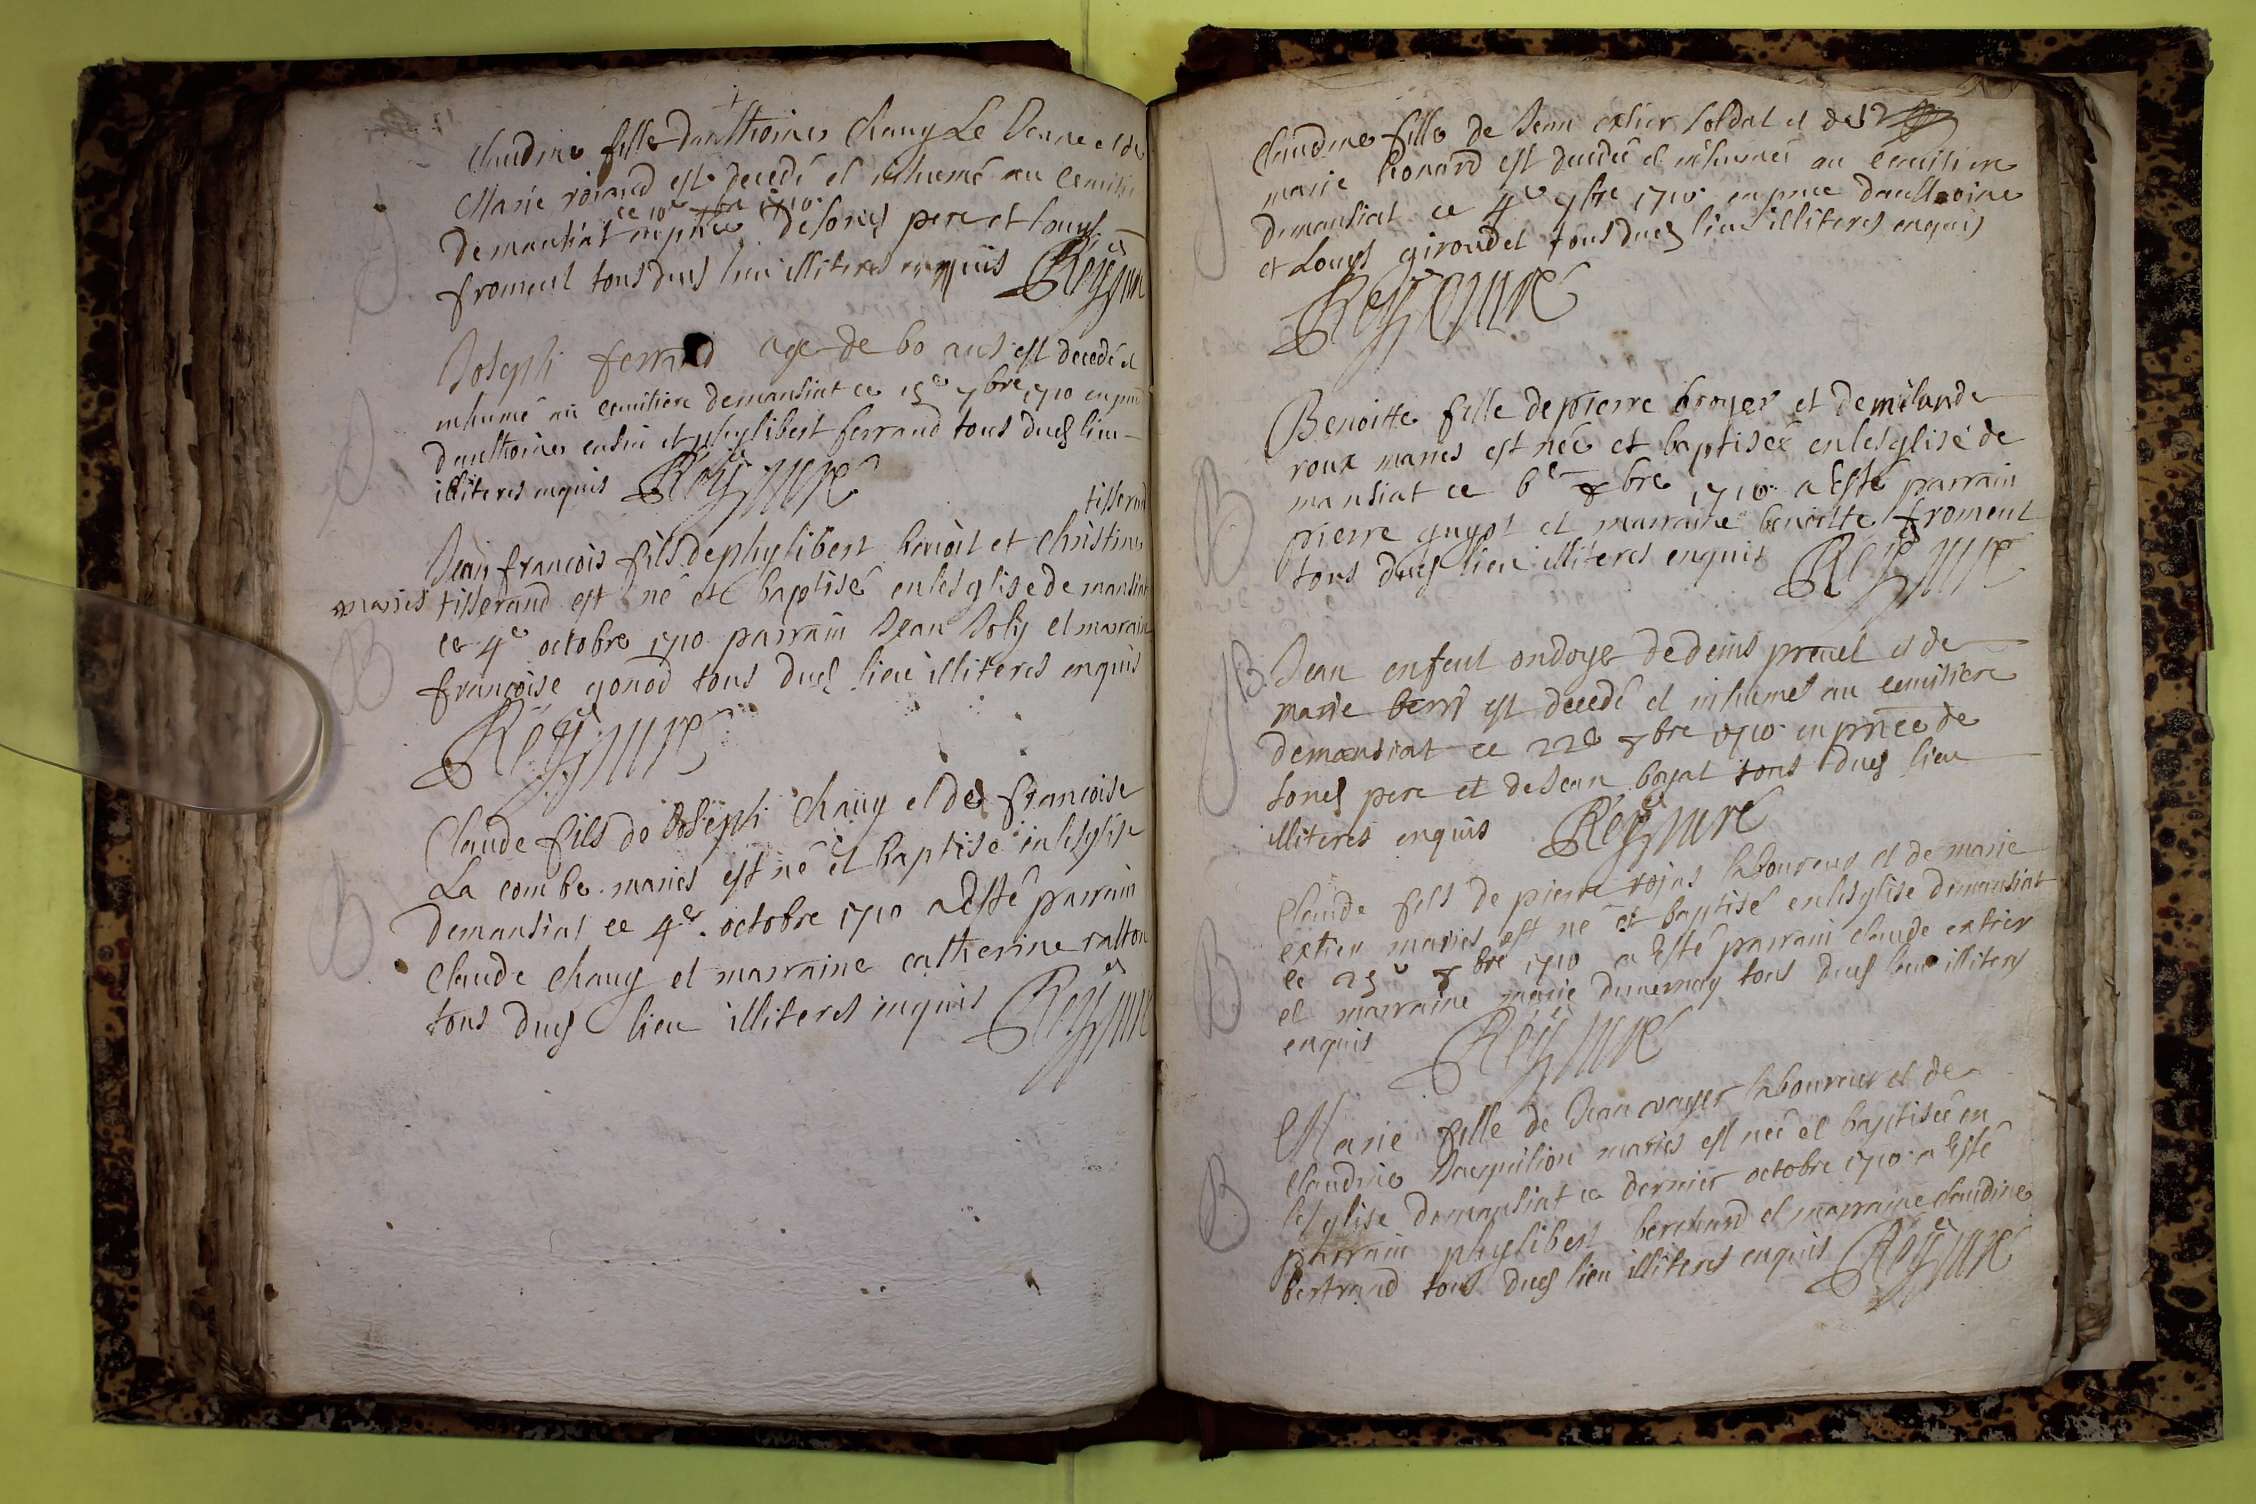 Claudine fille danthoines Chany Le Jenne et de
Marie est decedé et inhumé au Cemiti
ce 10e 7bre 1710
demansiat en pnce de sondt pere et Louys
froment tous dudt lieu illiteres enquis Rey curé
Joseph ferrand age de 60 ans est decedé et
inhumé au cemitiere demansiat ce 15e 7bre 1710 en pnce
danthoines et phylibert ferrand tous dudt lieu
illiteres enquis Rey curé
tisserand
Jean françois fils de phylibert benoit et Christine
maries tisserand est né et baptisé en lesglise de mansiat
ce 4e octobre 1710 parrain Jean Joly et marraine
françoise gonod tous dudt lieu illiteres enquis
Rey curé
B
Claude fils de Joseph Chany et de françoise
La combe maries est né et baptisé en lesglise
demansiat ce 4e octobre 1710 a Esté parrain
Claude Chany et marraine catherine ratton
tous dudt lieu illiteres enquis Rey curé
B
Claudine fille de Jean extier soldat et de
marie est decedée et inhumée au Cemitiere
demansiat ce 4e 9bre 1710 en pnce danthoine
et Louys giroudet tous dudt lieu illiteres enquis
Rey curé
Benoitte fille de pierre broyer et de
roux maries est née et baptiseé en lesglise de
mansiat ce 6e 8bre 1710 a Esté parrain
pierre guyot et marraine benoitte froment
tous dudt lieu illiteres enquis Rey curé
B
Jean enfent ondoye de denis preuel et de
marie berri est decedé et inhumé au cemitiere
demansiat ce 22e 8bre 1710 en pnce de
sondt pere et de Jean boyat tous dudt lieu
illiteres enquis Rey curé
B
Claude fils de pierre rojas laboureur et de marie
extier maries est né et baptisé en lesglise demansiat
ce 25e 8bre 1710 a Esté parrain claude extier
et marraine marie duuernay tous dudt lieu illiteres
enquis Rey curé
B
Marie fille de Jean voayer laboureur et de
Claudine Jacquilion maries est née et baptisée en
lesglise demansiat ce dernier octobre 1710 a Esté
parrain phylibert berchard et marraine claudine
bertrand tous dudt lieu illiteres enquis Rey curé
B